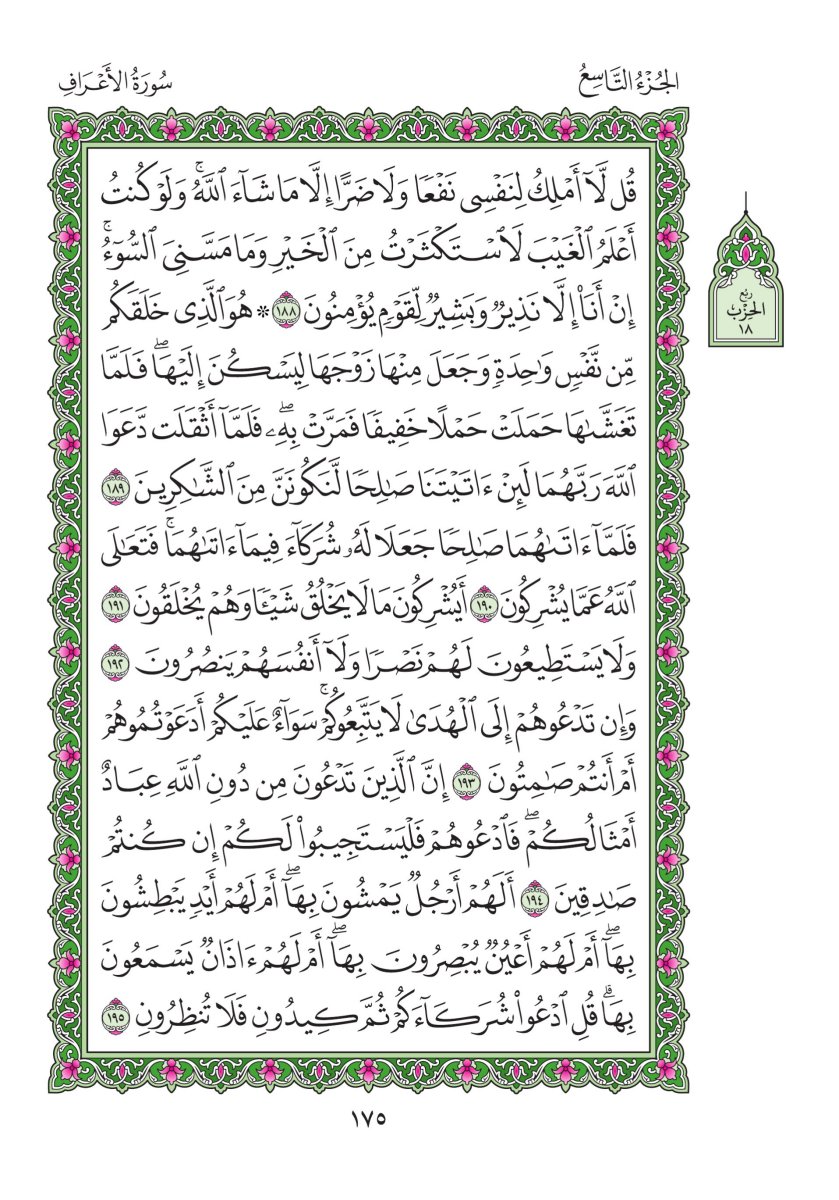 الجُزْءُ التَّاسِعُ
سُورَةُ الأَعْرَافِ
قُل لَّآ أَمْلِكُ لِنَفْسِى نَفْعًا وَلَا ضَرًّا إِلَّا مَا شَآءَ ٱللَّهُۚ وَلَوْ كُنتُ
أَعْلَمُ ٱلْغَيْبَ لَٱسْتَكْثَرْتُ مِنَ ٱلْخَيْرِ وَمَا مَسَّنِىَ ٱلسُّوٓءُۚ
إِنْ أَنَا۠ إِلَّا نَذِيرٌ وَبَشِيرٌ لِّقَوْمٍ يُؤْمِنُونَ ١٨٨ * هُوَ ٱلَّذِى خَلَقَكُم
مِّن نَّفْسٍ وَٰحِدَةٍ وَجَعَلَ مِنْهَا زَوْجَهَا لِيَسْكُنَ إِلَيْهَاۖ فَلَمَّا
تَغَشَّىٰهَا حَمَلَتْ حَمْلًا خَفِيفًا فَمَرَّتْ بِهِۦۖ فَلَمَّآ أَثْقَلَت دَّعَوَا
ٱللَّهَ رَبَّهُمَا لَئِنْ ءَاتَيْتَنَا صَٰلِحًا لَّنَكُونَنَّ مِنَ ٱلشَّٰكِرِينَ ١٨٩
فَلَمَّآ ءَاتَىٰهُمَا صَٰلِحًا جَعَلَا لَهُۥ شُرَكَآءَ فِيمَآ ءَاتَىٰهُمَاۚ فَتَعَٰلَى
ٱللَّهُ عَمَّا يُشْرِكُونَ ١٩٠ أَيُشْرِكُونَ مَا لَا يَخْلُقُ شَيْـًٔا وَهُمْ يُخْلَقُونَ ١٩١
وَلَا يَسْتَطِيعُونَ لَهُمْ نَصْرًا وَلَآ أَنفُسَهُمْ يَنصُرُونَ ١٩٢
وَإِن تَدْعُوهُمْ إِلَى ٱلْهُدَىٰ لَا يَتَّبِعُوكُمْۚ سَوَآءٌ عَلَيْكُمْ أَدَعَوْتُمُوهُمْ
أَمْ أَنتُمْ صَٰمِتُونَ ١٩٣ إِنَّ ٱلَّذِينَ تَدْعُونَ مِن دُونِ ٱللَّهِ عِبَادٌ
أَمْثَالُكُمْۖ فَٱدْعُوهُمْ فَلْيَسْتَجِيبُوا۟ لَكُمْ إِن كُنتُمْ
صَٰدِقِينَ ١٩٤ أَلَهُمْ أَرْجُلٌ يَمْشُونَ بِهَآۖ أَمْ لَهُمْ أَيْدٍ يَبْطِشُونَ
بِهَآۖ أَمْ لَهُمْ أَعْيُنٌ يُبْصِرُونَ بِهَآۖ أَمْ لَهُمْ ءَاذَانٌ يَسْمَعُونَ
بِهَاۗ قُلِ ٱدْعُوا۟ شُرَكَآءَكُمْ ثُمَّ كِيدُونِ فَلَا تُنظِرُونِ ١٩٥
رُبْعُ
الحِزْبِ
١٨
١٧٥